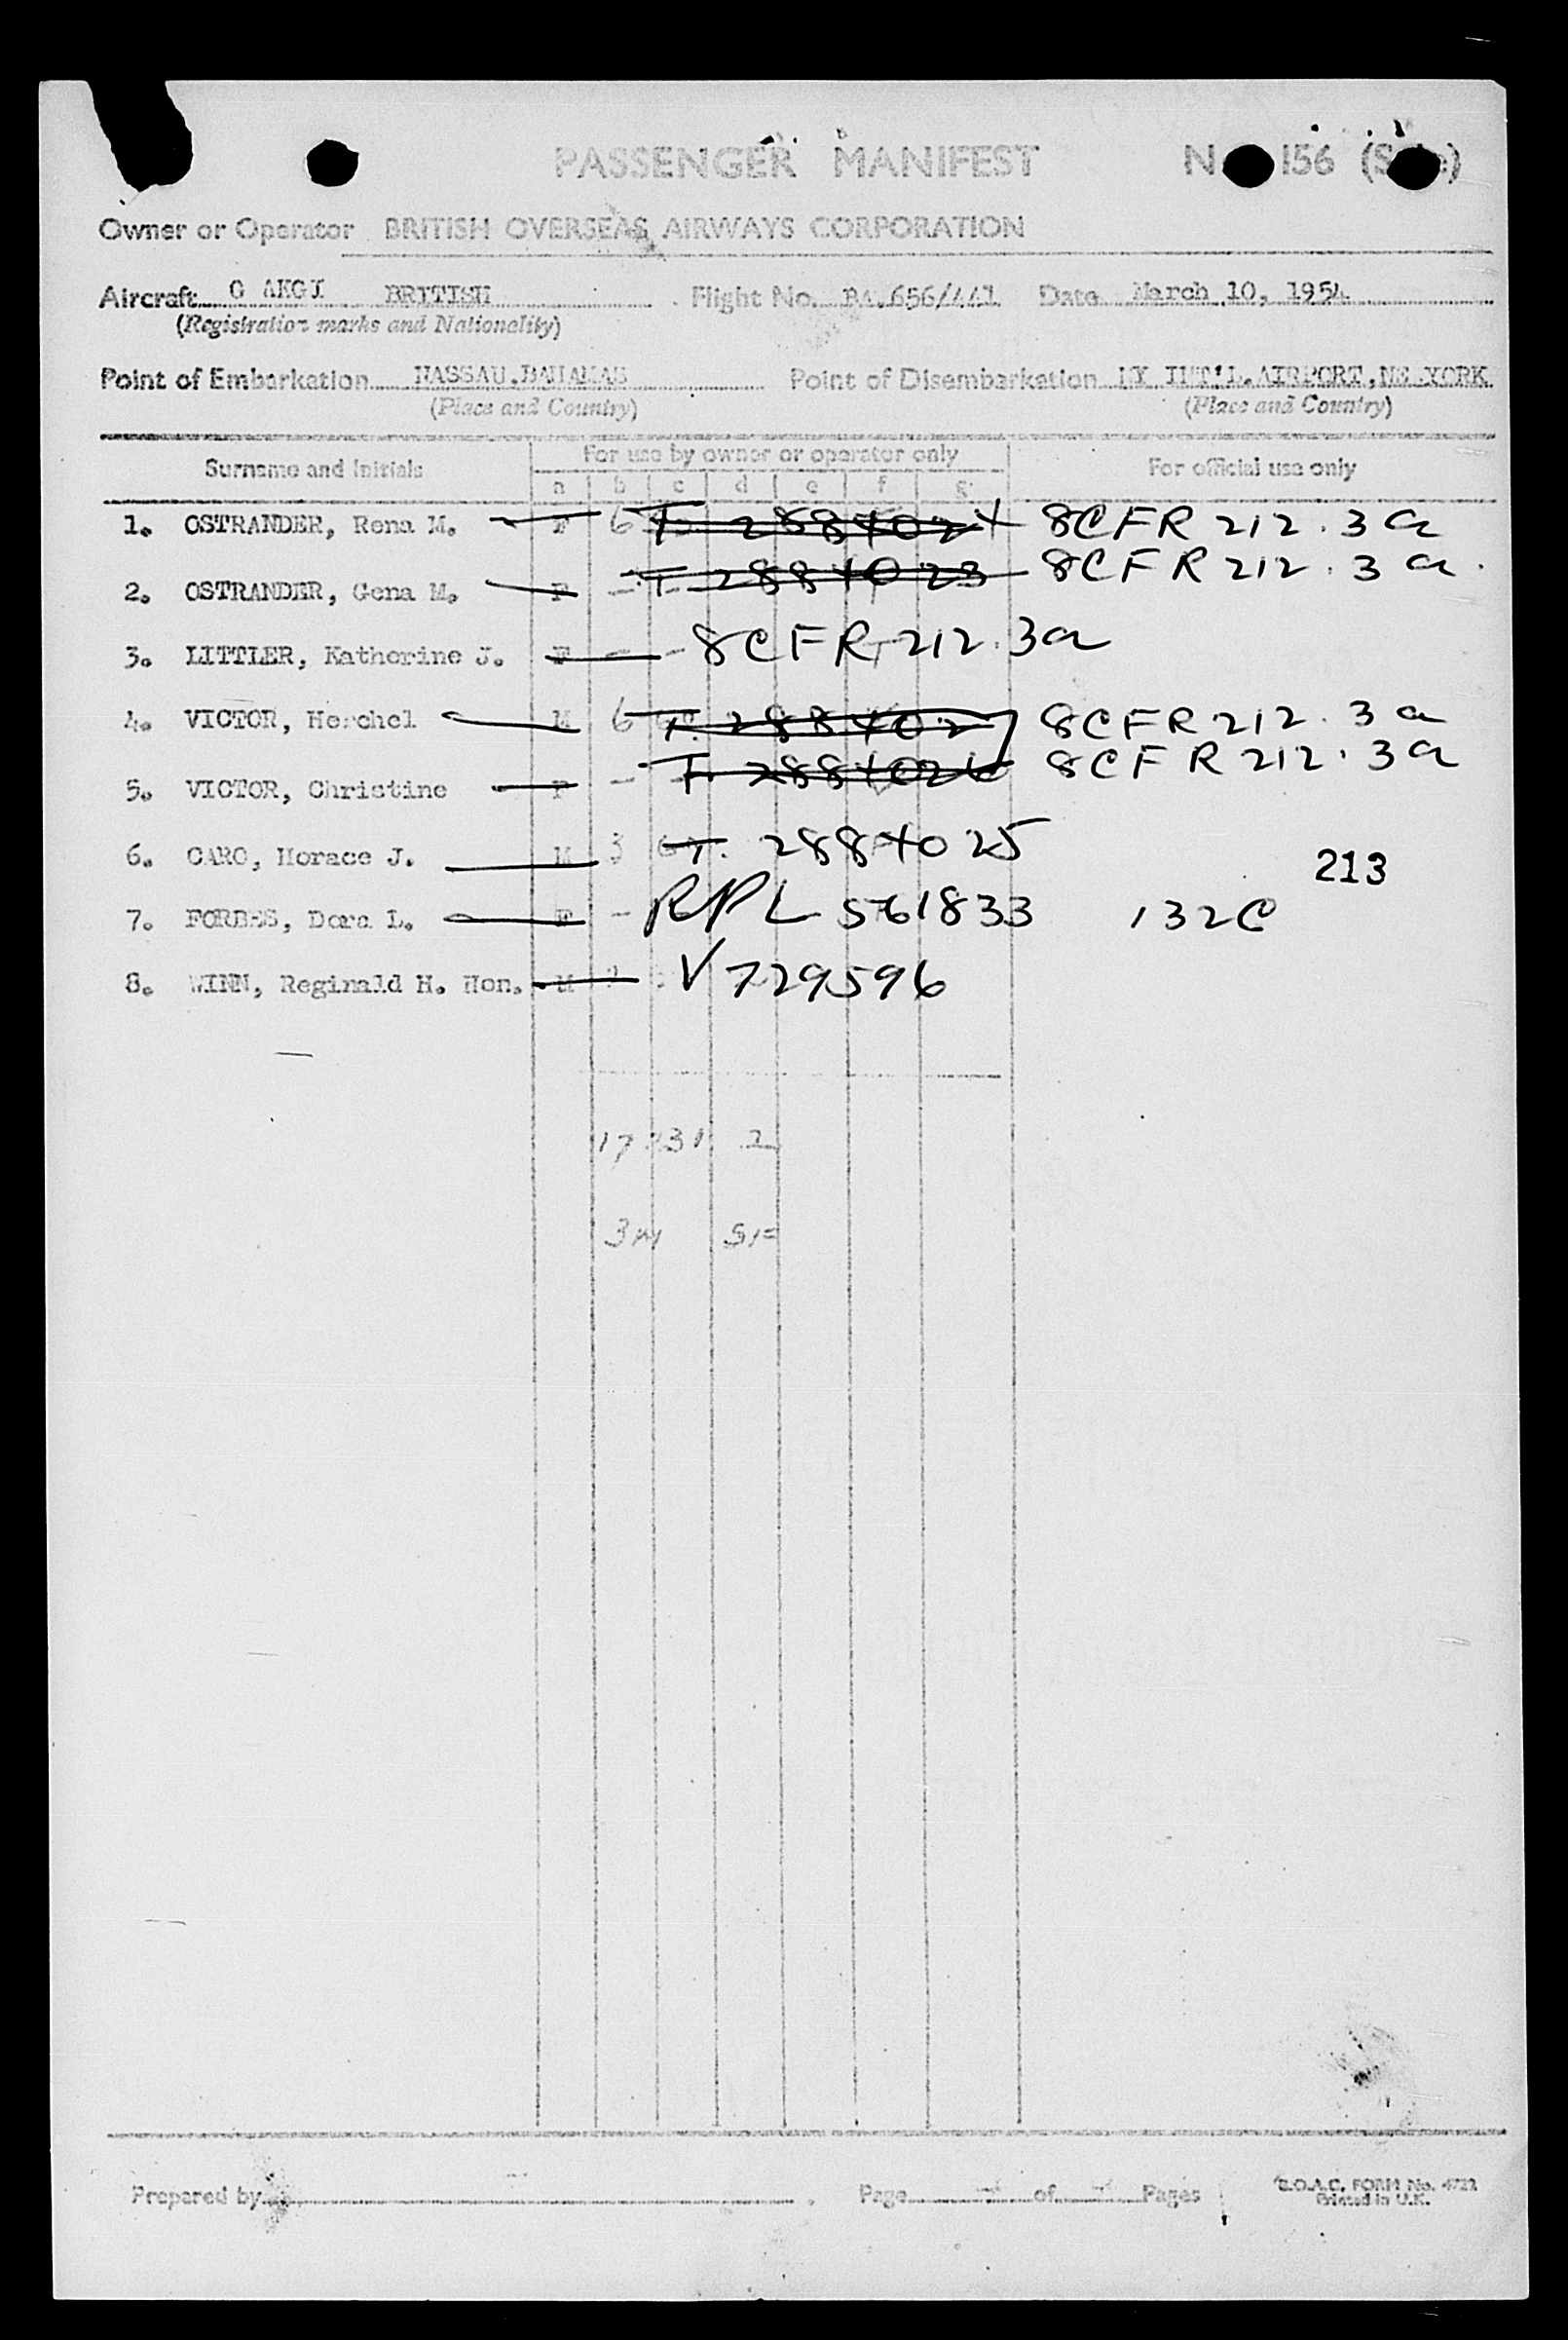 PASSENGER MANIFEST
156
Owner or Operator BRITISH OVERSEAS AIRWAYS CORPORATION
Aircraft G AKGJ BRITISH Flight No. BA.656/441 Date March 10, 1954
(Registration marks and Nationality)
Point of Embarkation NASSAU.BAHAMAS Point of Disembarkation NY INT'L.AIRPORT,NE YORK
(Place and Country) (Place and Country)
Surname and Initials For use by owner or operator only For official use only
a b c d e f g
1. OSTRANDER, Rena M. F 6 T. 2884024 8CFR 212.3a
2. OSTRANDER, Gena M. F - T- 2884023 8CFR 212.3a.
3. LITTLER, Katherine J. F - - 8CFR 212.3a
4. VICTOR, Herchel M 6 T. 2884027 8CFR 212.3a
5. VICTOR, Christine F - T. 2884026 8CFR 212.3a
6. CARO, Horace J. M 3 T. 2884025
213
7. FORBES, Dora L. F - RPL 561833 132C
8. WINN, Reginald H. Hon. M V 729596
17 231 2
3M 5F
Prepared by Page of Pages
B.O.A.C. FORM No. 4722
Printed in U.K.